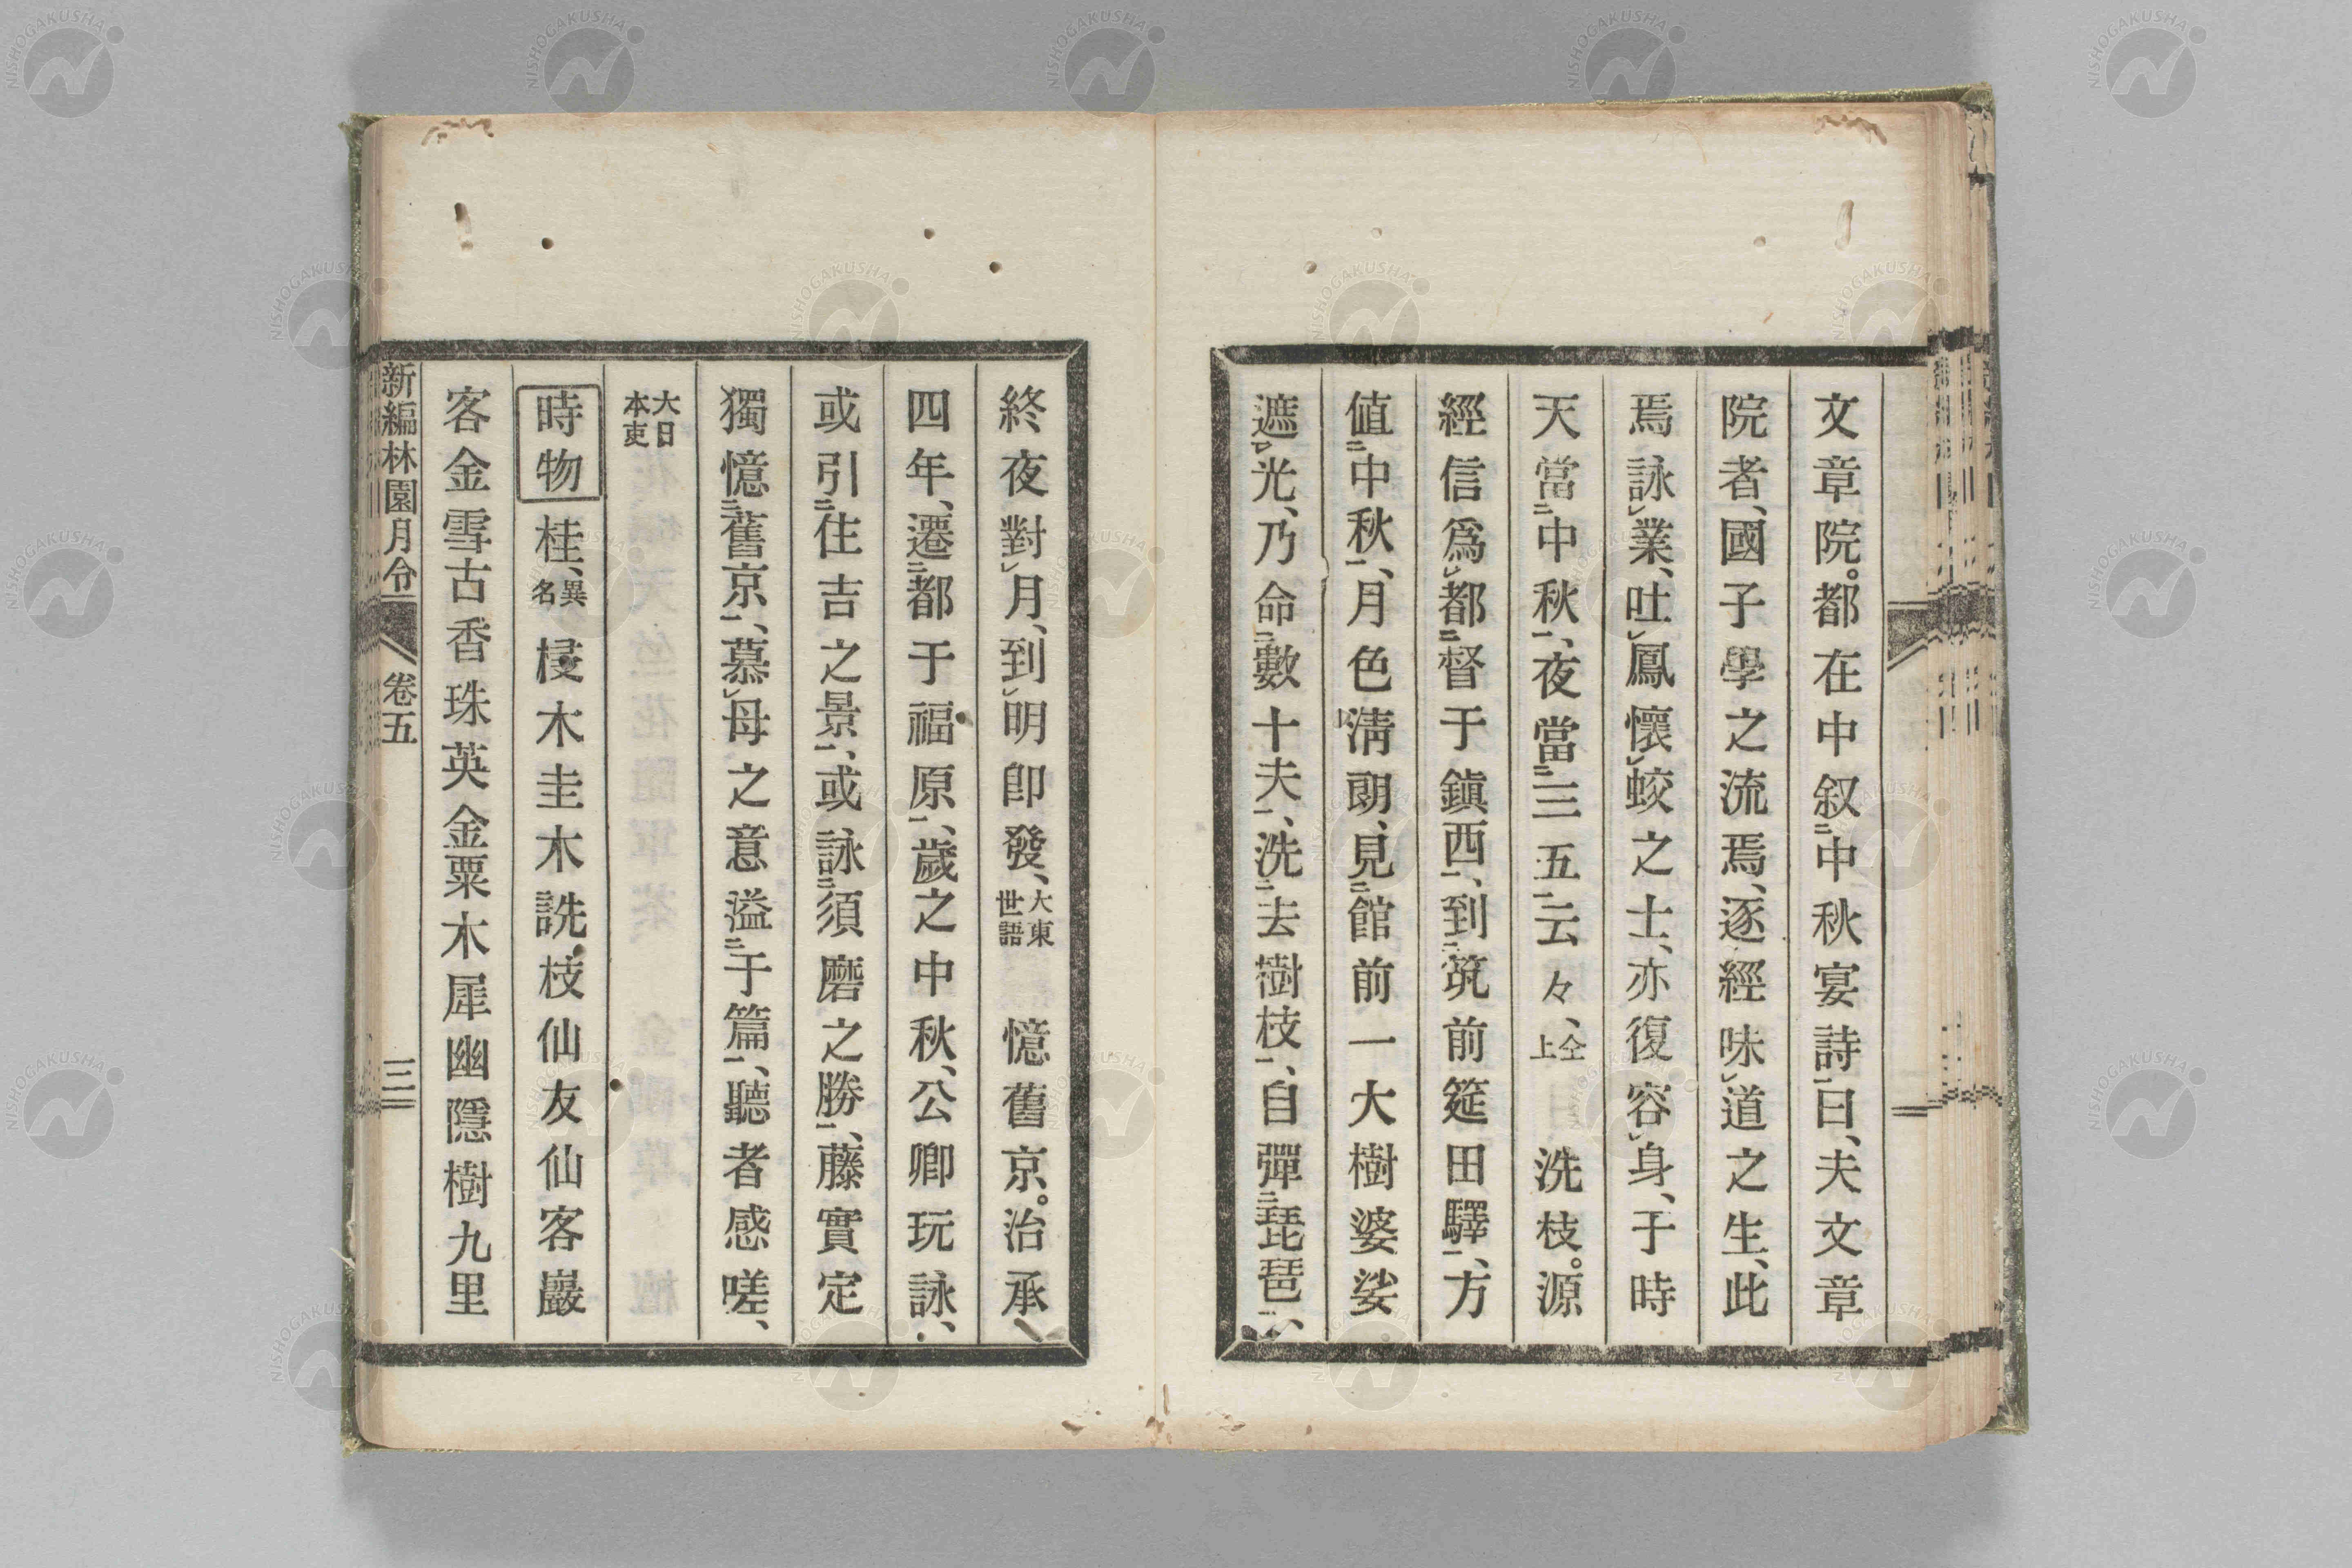 文章院。都在中叙㆓中秋宴詩㆒曰、夫文章
院者、國子學之流焉、逐經味㆑道之生、此
焉詠㆑業、吐㆑鳳懷㆑蛟之士、亦復容㆑身、于時
天當㆓中秋㆒、夜當㆓三五㆒云々、仝上 洗枝。源
經信爲㆓都督于鎭西㆒、到㆓筑前筵田驛㆒、方
値㆓中秋㆒、月色淸朗、見㆓館前一大樹婆娑
遮㆑光、乃命㆓數十夫㆒、洗㆓去樹枝㆒、自彈㆓琵琶㆒、
終夜對㆑月、到㆑明卽發、大東世語 憶舊京。治承
四年、遷㆓都于福原㆒、歲之中秋、公卿玩詠、
或引㆓住吉之景㆒、或詠㆓須磨之勝㆒、藤實定
獨憶㆓舊京㆒、慕㆑母之意溢㆓于篇㆒、聽者感嗟、
大日本吏
時物 桂、異名 梫木圭木詵枝仙友仙客巖
客金雪古香珠英金粟木犀幽隱樹九里
新編林園月令 卷五 三